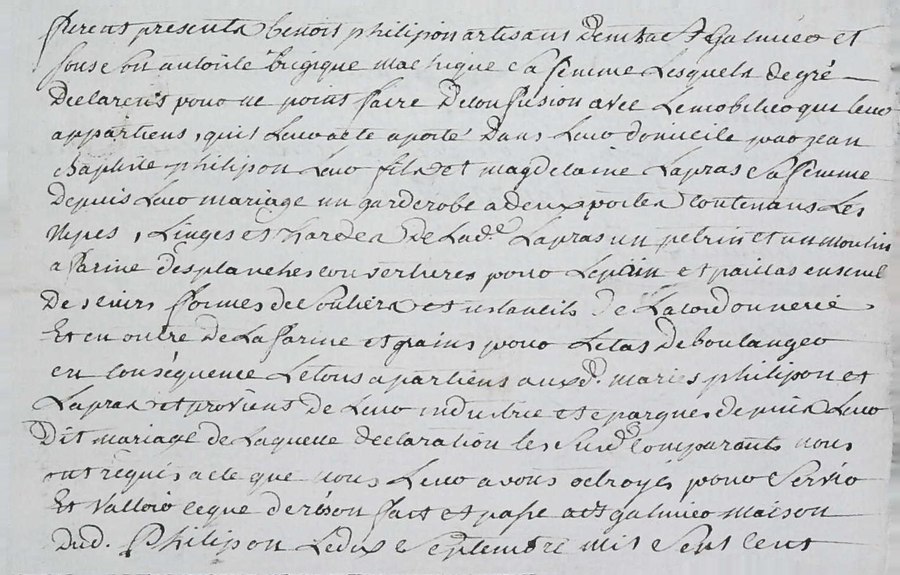 furent presents benoit philipon artisans St Galmier et
sous son autorité brigique machique sa femme Lesquels de gré
Declarent pour ne point faire De confusion avec Le mobilier qui leur
appartiens, quil Leur a ete aporté Dans Leur domicile par jean
baptiste philipon Leur fils et magdelaine Lapras sa femme
Depuis Leur mariage un garderobe a deux portes Contenans Les
Nipes, Linges et hardes De Lade. Lapras un petrin et un moulin
a farine des planches couvertures pour Le pain et paillas
De Cuirs formes de souliers et instancils De La cordonnerie
Et en outre De La farine et grains pour Letas De boulanger
en Conséquence Le tous apartiens auxd. mariés philipon et
Lapras et proviens de Leur industrie et epargnes depuis Leur
Dit mariage de Laquelle declaration les Susd. Comparants nous
ont réquis acte que nous Leur avons octroyés pour Servir
Et Valloir ce que de réson fait et passé a St galmier maison
Dud. Philipon Le dix Septembre mil Sept Cent